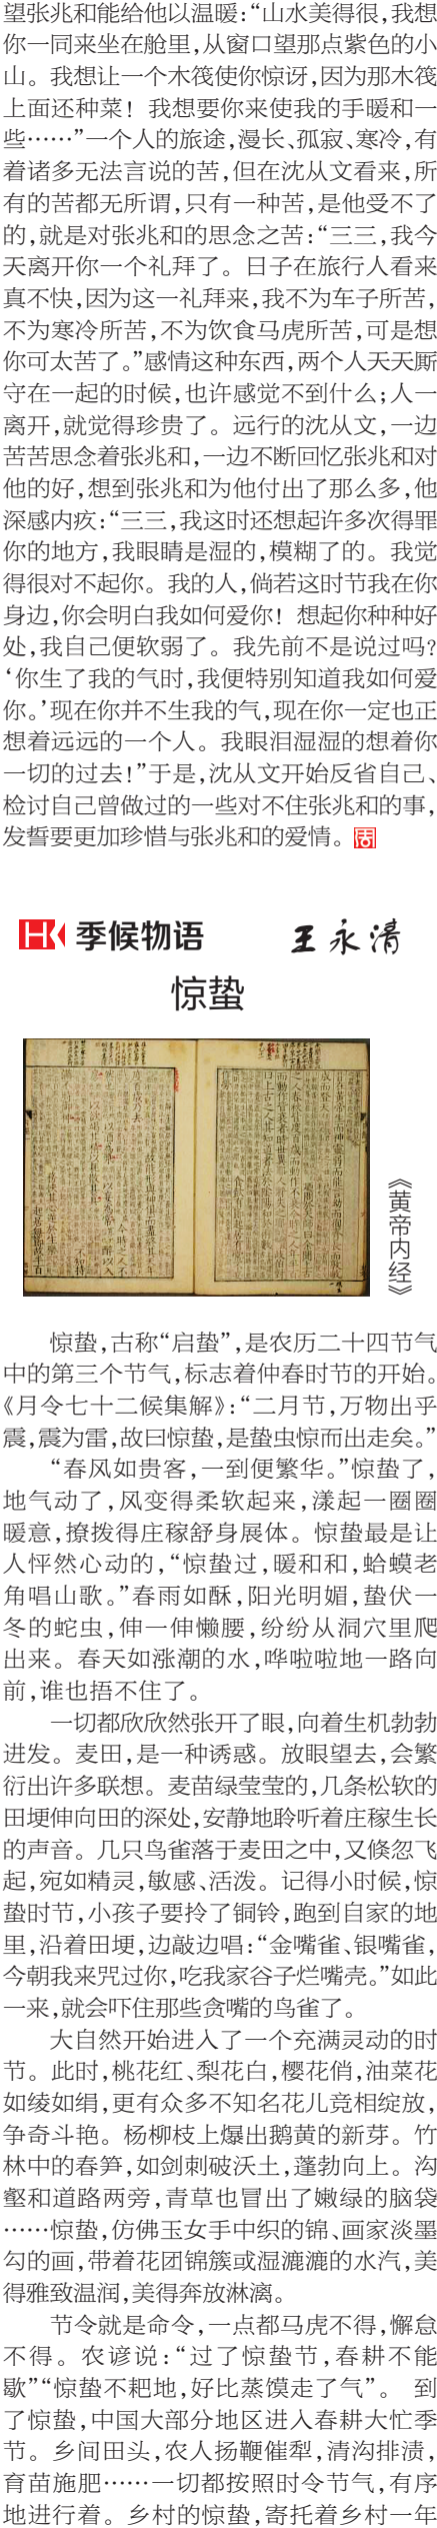 望张兆和能给他以温暖：“山水美得很，我想
你一同来坐在舱里，从窗口望那点紫色的小
山。我想让一个木筏使你惊讶，因为那木筏
上面还种菜！我想要你来使我的手暖和一
些……”一个人的旅途，漫长、孤寂、寒冷，有
着诸多无法言说的苦，但在沈从文看来，所
有的苦都无所谓，只有一种苦，是他受不了
的，就是对张兆和的思念之苦：“三三，我今
天离开你一个礼拜了。日子在旅行人看来
真不快，因为这一礼拜来，我不为车子所苦，
不为寒冷所苦，不为饮食马虎所苦，可是想
你可太苦了。”感情这种东西，两个人天天厮
守在一起的时候，也许感觉不到什么；人一
离开，就觉得珍贵了。远行的沈从文，一边
苦苦思念着张兆和，一边不断回忆张兆和对
他的好，想到张兆和为他付出了那么多，他
深感内疚：“三三，我这时还想起许多次得罪
你的地方，我眼睛是湿的，模糊了的。我觉
得很对不起你。我的人，倘若这时节我在你
身边，你会明白我如何爱你！想起你种种好
处，我自己便软弱了。我先前不是说过吗？
‘你生了我的气时，我便特别知道我如何爱
你。’现在你并不生我的气，现在你一定也正
想着远远的一个人。我眼泪湿湿的想着你
一切的过去！”于是，沈从文开始反省自己、
检讨自己曾做过的一些对不住张兆和的事，
发誓要更加珍惜与张兆和的爱情。周
HK 季候物语 王永清
惊蛰
《黄帝内经》
惊蛰，古称“启蛰”，是农历二十四节气
中的第三个节气，标志着仲春时节的开始。
《月令七十二候集解》：“二月节，万物出乎
震，震为雷，故曰惊蛰，是蛰虫惊而出走矣。”
“春风如贵客，一到便繁华。”惊蛰了，
地气动了，风变得柔软起来，漾起一圈圈
暖意，撩拨得庄稼舒身展体。惊蛰最是让
人怦然心动的，“惊蛰过，暖和和，蛤蟆老
角唱山歌。”春雨如酥，阳光明媚，蛰伏一
冬的蛇虫，伸一伸懒腰，纷纷从洞穴里爬
出来。春天如涨潮的水，哗啦啦地一路向
前，谁也捂不住了。
一切都欣欣然张开了眼，向着生机勃勃
进发。麦田，是一种诱惑。放眼望去，会繁
衍出许多联想。麦苗绿莹莹的，几条松软的
田埂伸向田的深处，安静地聆听着庄稼生长
的声音。几只鸟雀落于麦田之中，又倏忽飞
起，宛如精灵，敏感、活泼。记得小时候，惊
蛰时节，小孩子要拎了铜铃，跑到自家的地
里，沿着田埂，边敲边唱：“金嘴雀、银嘴雀，
今朝我来咒过你，吃我家谷子烂嘴壳。”如此
一来，就会吓住那些贪嘴的鸟雀了。
大自然开始进入了一个充满灵动的时
节。此时，桃花红、梨花白，樱花俏，油菜花
如绫如绢，更有众多不知名花儿竞相绽放，
争奇斗艳。杨柳枝上爆出鹅黄的新芽。竹
林中的春笋，如剑刺破沃土，蓬勃向上。沟
壑和道路两旁，青草也冒出了嫩绿的脑袋
……惊蛰，仿佛玉女手中织的锦、画家淡墨
勾的画，带着花团锦簇或湿漉漉的水汽，美
得雅致温润，美得奔放淋漓。
节令就是命令，一点都马虎不得，懈怠
不得。农谚说：“过了惊蛰节，春耕不能
歇”“惊蛰不耙地，好比蒸馍走了气”。 到
了惊蛰，中国大部分地区进入春耕大忙季
节。乡间田头，农人扬鞭催犁，清沟排渍，
育苗施肥……一切都按照时令节气，有序
地进行着。乡村的惊蛰，寄托着乡村一年